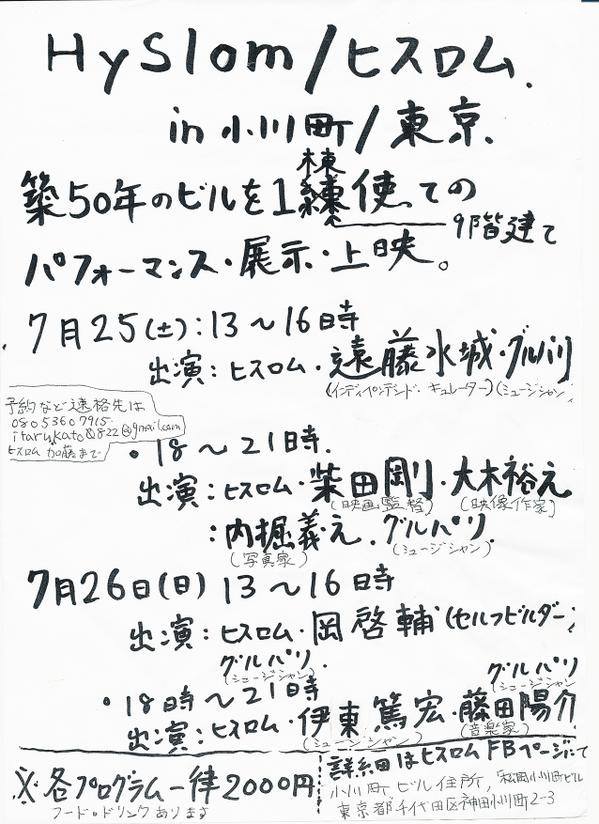 HySlom/ヒスロム
in 小川町/東京
棟
築50年のビルを1棟使っての
9階建て
パフォーマンス・展示・上映。
7月25(土):13〜16時
出演:ヒスロム・遠藤水城・グルパリ
(インディペンデンド・キュレーター)(ミュージシャン)
予約など連絡先は
08053607915
itarukato0822@gmail.com
ヒスロム 加藤まで
・18〜21時.
出演:ヒスロム・柴田剛・大木裕之
(映画監督) (映像作家)
:内堀義之.グルパリ
(写真家) (ミュージシャン)
7月26日(日) 13〜16時
出演:ヒスロム・岡啓輔(セルフビルダー)
グルパリ
(ミュージシャン)
・18時〜21時
グルパリ
(ミュージシャン)
出演:ヒスロム・伊東篤宏・藤田陽介
(ミュージシャン) (音楽家)
※各プログラム一律2000円
フード・ドリンクあります
詳細はヒスロムFBページにて
小川町ビル住所,
小川町ビル
東京都千代田区神田小川町2-3